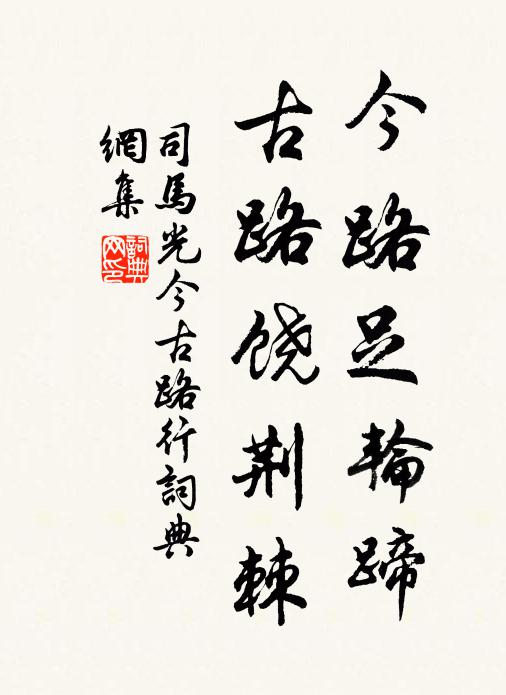 今路足輪蹄
古路饶荆棘
司馬光今古路行詞典
網集
詞典网印